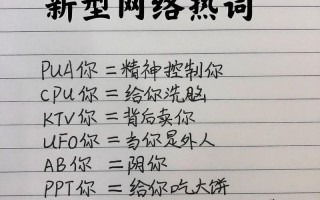 新型网络热词
PUA你=精神控制你
CPU你=给你洗脑
KTV你=背后卖你
UFO你=当你是外人
AB你=阴你
PPT你=给你吃大饼